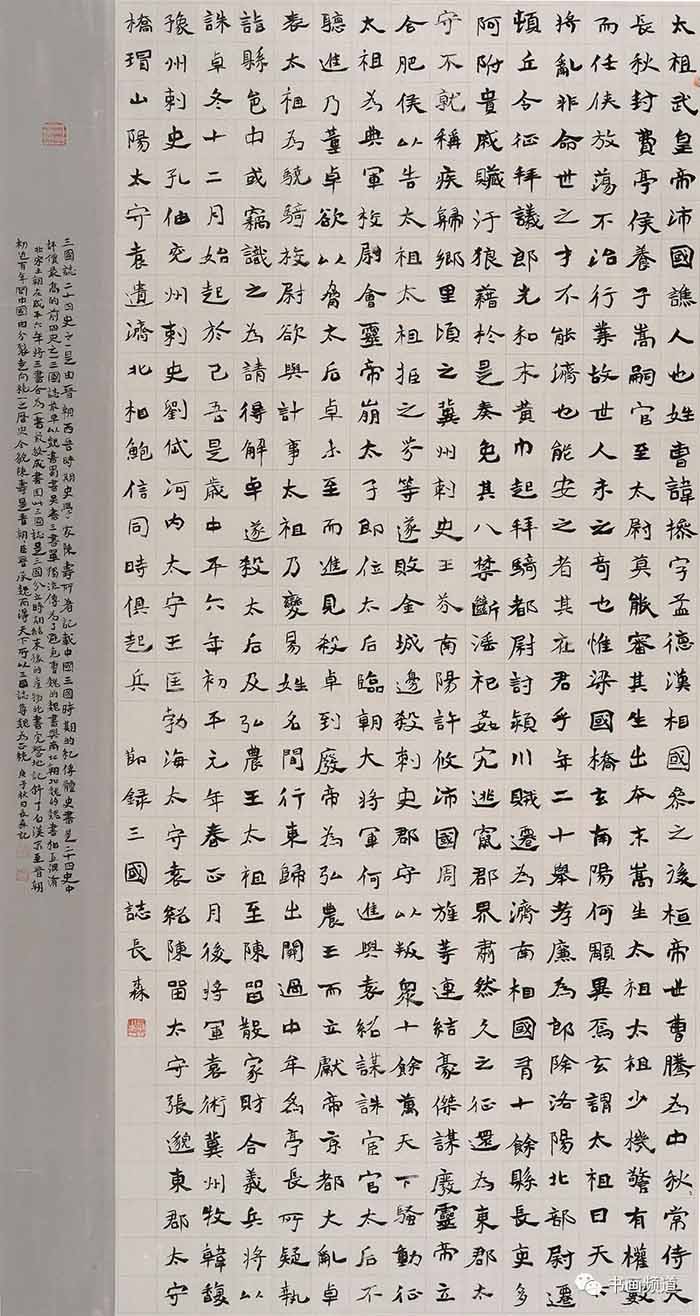 太祖武皇帝沛國譙人也姓曹諱操字孟德漢相國參之後桓帝世曹騰為中秋常侍大
長秋封費亭侯養子嵩嗣官至太尉莫能審其生出本末嵩生太祖太祖少機警有權數
而任俠放蕩不治行業故世人未之奇也惟梁國橋玄南陽何顒異焉玄謂太祖曰天下
將亂非命世之才不能濟也能安之者其在君乎年二十舉孝廉為郎除洛陽北部尉遷
頓丘令征拜議郎光和末黃巾起拜騎都尉討潁川賊遷為濟南相國有十餘縣長吏多
阿附貴戚贓汙狼藉於是奏免其八禁斷淫祀姦宄逃竄郡界肅然久之征還為東郡太
守不就稱疾歸鄉里頃之冀州刺史王芬南陽許攸沛國周旌等連結豪傑謀廢靈帝立
合肥侯以告太祖太祖拒之芬等遂敗金城邊殺刺史郡守以叛眾十餘萬天下騷動征
太祖為典軍校尉會靈帝崩太子即位太后臨朝大將軍何進與袁紹謀誅宦官太后不
聽進乃董卓欲以脅太后卓未至而進見殺卓到廢帝為弘農王而立獻帝京都大亂卓
表太祖為驍騎校尉欲與計事太祖乃變易姓名間行東歸出關過中牟為亭長所疑執
詣縣邑中或竊識之為請得解卓遂殺太后及弘農王太祖至陳留散家財合義兵將以
誅卓冬十二月始起於己吾是歲中平六年初平元年春正月後將軍袁術冀州牧韓馥
豫州刺史孔伷兗州刺史劉岱河內太守王匡勃海太守袁紹陳留太守張邈東郡太守
橋瑁山陽太守袁遺濟北相鮑信同時俱起兵 節錄三國誌長森
三國誌二十四史之一是由晉朝西晉時期史學家陳壽所著記載中國三國時期的紀傳體史書是二十四史中
評價最高的前四史之一三國誌最早以魏書蜀書吳書三書單獨流傳為了避免曹魏的魏書與南北朝北魏的魏書相互混淆
北宋王朝在咸平六年將三書合為一書最終成書因此三國誌是三國分立時期結束後的產物此書完整地記敘了自漢末至晉朝
初近百年間中國由分裂走向統一之歷史全貌陳壽是晉朝臣晉承魏而得天下所以三國誌尊魏為正統 庚子秋日長森記
书画频道